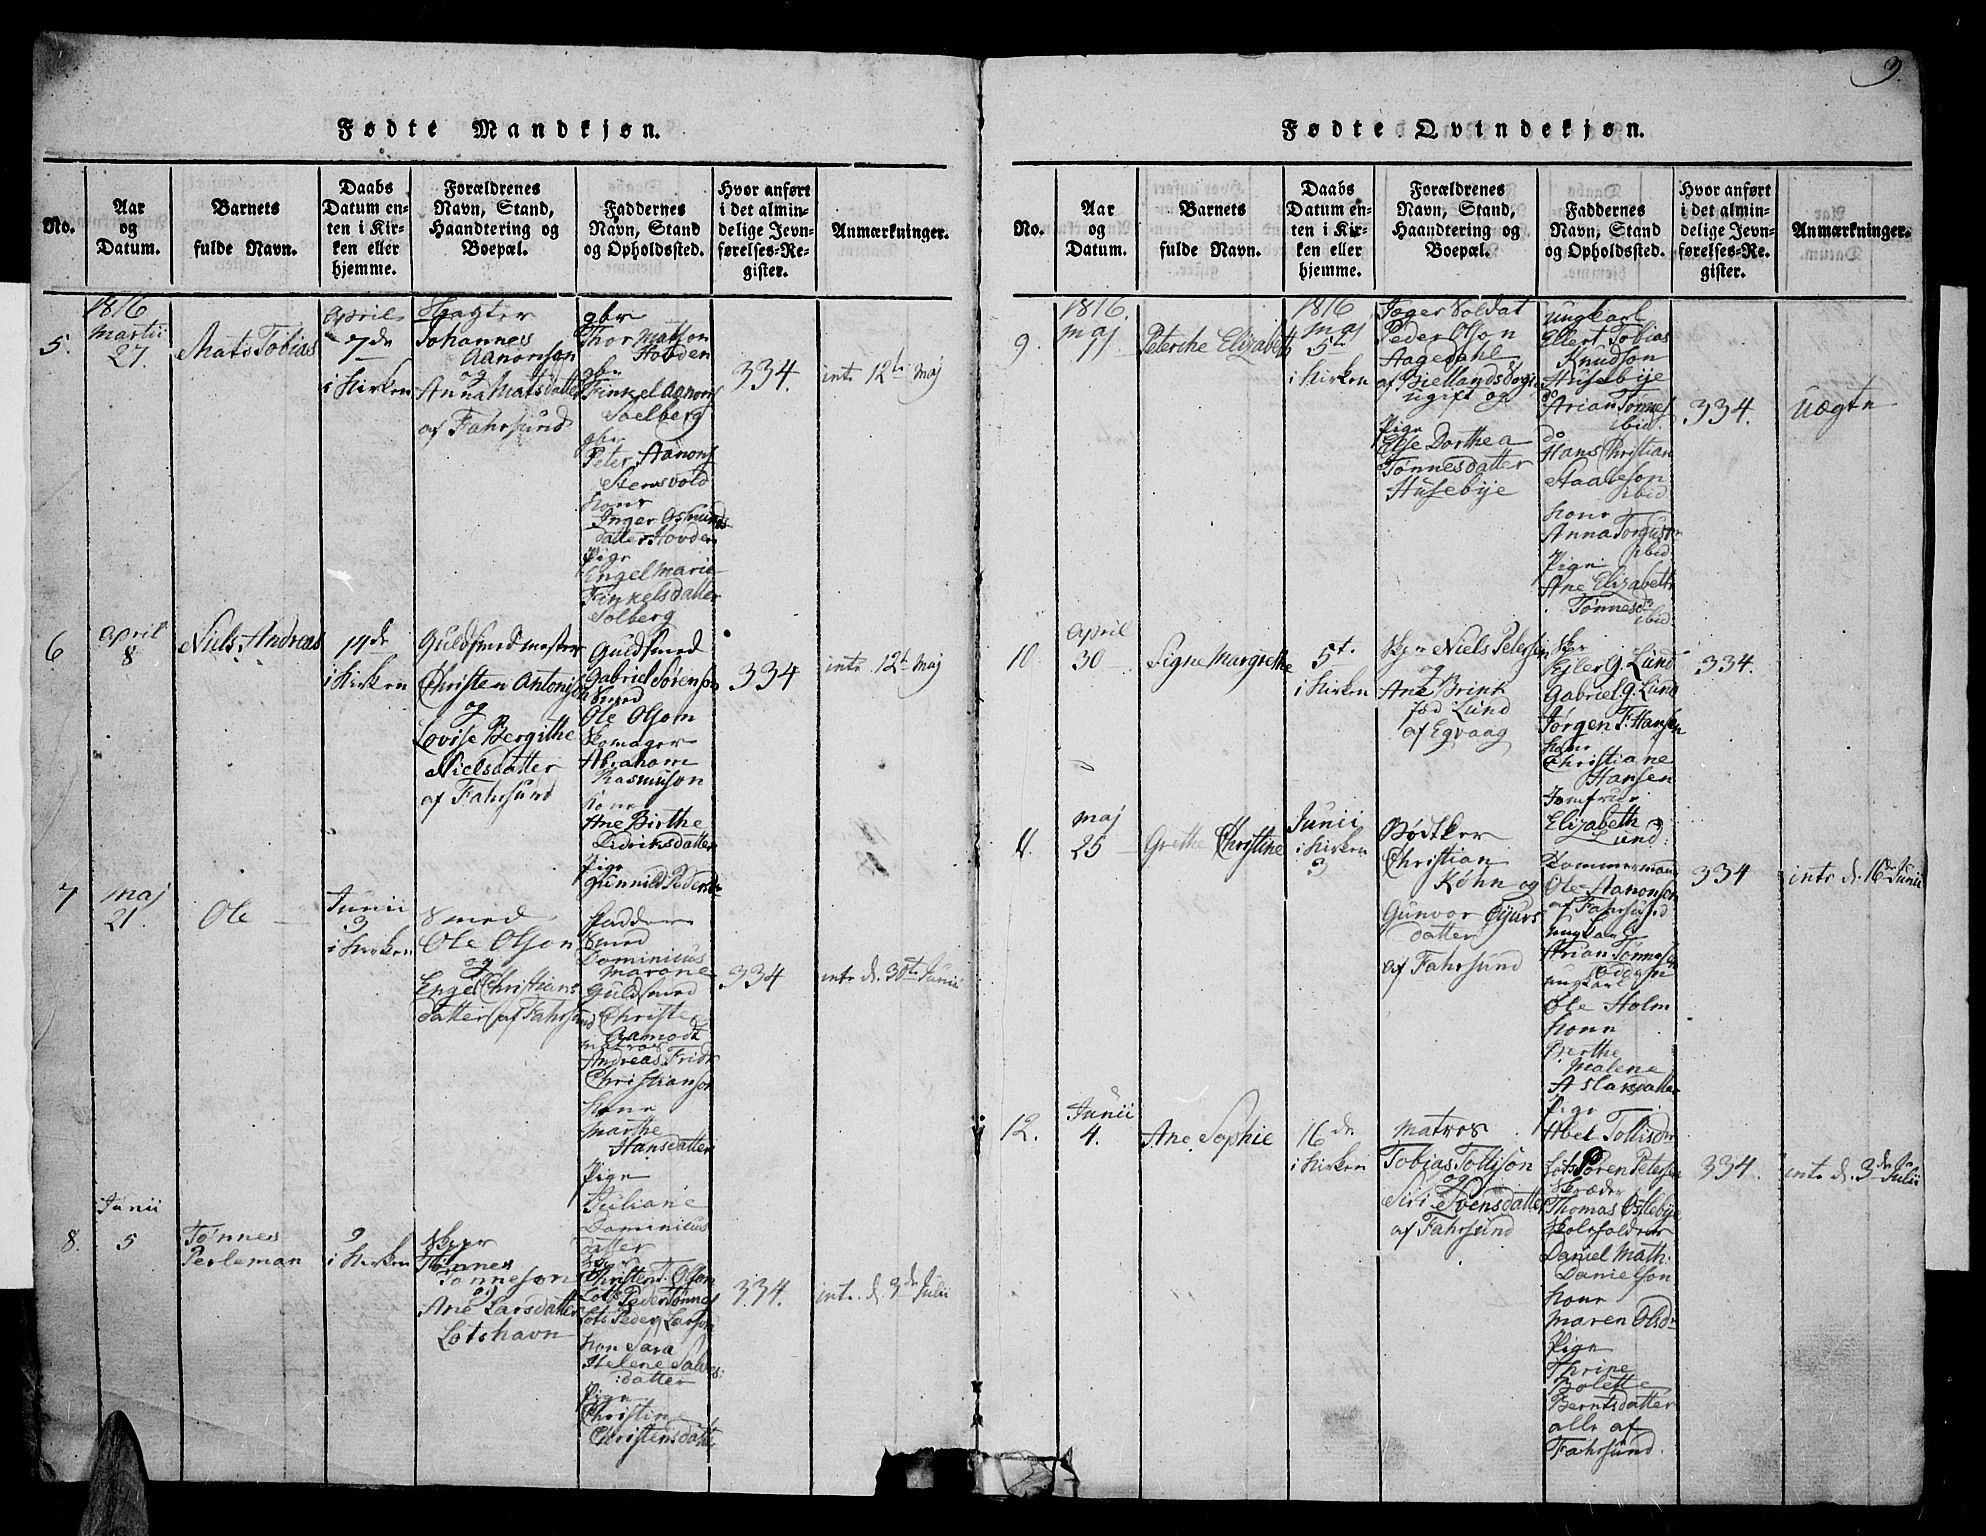 Fødte Mandkjøn.
No.
Aar
og
Datum.
Barnets
fulde Navn.
Daabs
Datum en-
ten i Kir-
ken eller
hjemme.
Forældrenes
Navn, Stand,
Haandtering og
Boepæl.
Faddernes
Navn, Stand
og Opholdssted.
Hvor anført
i det almin-
delige Jevn-
førelses-Re-
gister.
Anmærkninger.
5.
1816
Martii
27.
Mats Tobias
April
7de
i Kirken
Johannes
Aanonson
og
Anna Matsdatter
af Fahrsund
gbr
Thor Matson
Hovden
gbr
Tinkel Aanons
Soelberg
gbr
Peter Aanons
Stensvold
kone
Inger Osmunds
datter Hovden
Pige
Engel Marie
Tinkelsdatter
Solberg
334.
intr 12te Maj
6
April
8
Niels Andreas
14de
i Kirken
Guldsmedmester
Christen Antonison
og
Lovise Bergithe
Nielsdatter
af Fahrsund
Guldsmed
Gabriel Sørenson
Smed
Ole Olson
Skomager
Abraham
Rasmuson
kone
Ane Birthe
Didriksdatter
Pige
Gunnild Pedersd
334
intr 12te Maj
7
Maj
21.
Ole
Junii
3
i Kirken
Smed
Ole Olson
og
Engel Christians
datter af Fahrsund
Smed
Dominicus
Marone
Guldsmed
Christen
Aamodt
Matros
Andreas Fridr
Christianson
kone
Marthe
Hansdatter
Pige
Juliane
Dominicus
datter
334
intr d. 30te Junii
8.
Junii
5
Tønnes
Perleman
9
i Kirken
Skpr
Tønnes
Tønneson
og
Ane Larsdatter
Lotshavn
Skpr
Christen T. Olson
Lots Peder Tønnes
Lots Peder Larson
kon Sara
Helene Salves
datter
Pige
Christine
Christensdatter
334.
intr. d. 3de Julii
3.
Fødte Qvindekjøn.
No.
Aar
og
Datum.
Barnets
fulde Navn.
Daabs
Datum en-
ten i Kir-
ken eller
hjemme.
Forældrenes
Navn, Stand,
Haandtering og
Boepæl.
Faddernes
Navn, Stand
og Opholdssted.
Hvor anført
i det almin-
delige Jevn-
førelses-Re-
gister.
Anmærkninger.
9
1816.
Maj
1
Peterche Elizabeth
1816
Maj
5te
i Kirken
Jæger Soldat
Peder Olson
Aagedahl
af Biellands Sogn
ugift og
Pige
Else Dorthea
Tønnesdatter
Husebye
Ungkarl
Ellert Tobias
Knudson
Husebye
do
Arian Tønnes
ibid.
do
Hans Christian
Staaleson
ibid
kone
Anna Torgus
ibid
Pige
Ane Elizabeth
Tønnesd
ibid
334.
Uægte
10.
April
30
Signe Margrethe
5t.
i Kirken
Skpr Niels Petersen
og
Ane Brink
fød Lund
af Egvaag
Skpr
Ejler G. Lund
Gabriel G. Lund
Jørgen F. Hansen
kone
Christiane
Hansen
Jomfrue
Elizabeth
Lund
334.
11.
Maj
25
Grethe Christine
Junii
i Kirken
3
Bødtker
Christian
Køhn og
Gunvor Gjurs
datter
af Fahrsund
Tommermand
Ole Aanonson
af Fahrsund
ungkarl
Arian Tønneson
ungkarl
Ole Holm
kone
Berthe
Malene
Aslaksdatter
Pige
Abel Tollisdr
334
intr d. 16de Junii
12.
Junii
4.
Ane Sophie
16de
i Kirken
Matros
Tobias Tollison
og
Siri Svensdatter
af Fahrsund
Lots Søren Petersen
Skræder
Thomas Østebye
Skoleholder
Daniel Math.
Danielson
kone
Maren Olsdr
Pige
Thrine
Bolette
Berntsdatter
alle af
Fahrsund.
334.
intr d. 3de Julii